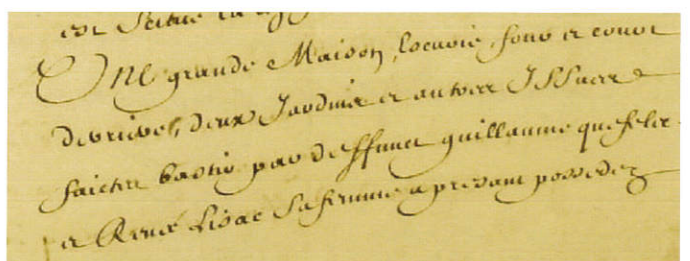 est scitue
Une grande Maison, escurie, four et couvr
deux Jardins et autres Issues
faictes bastir par deffunct guillaume quefeler
et René Lisac sa femme a presant possedez